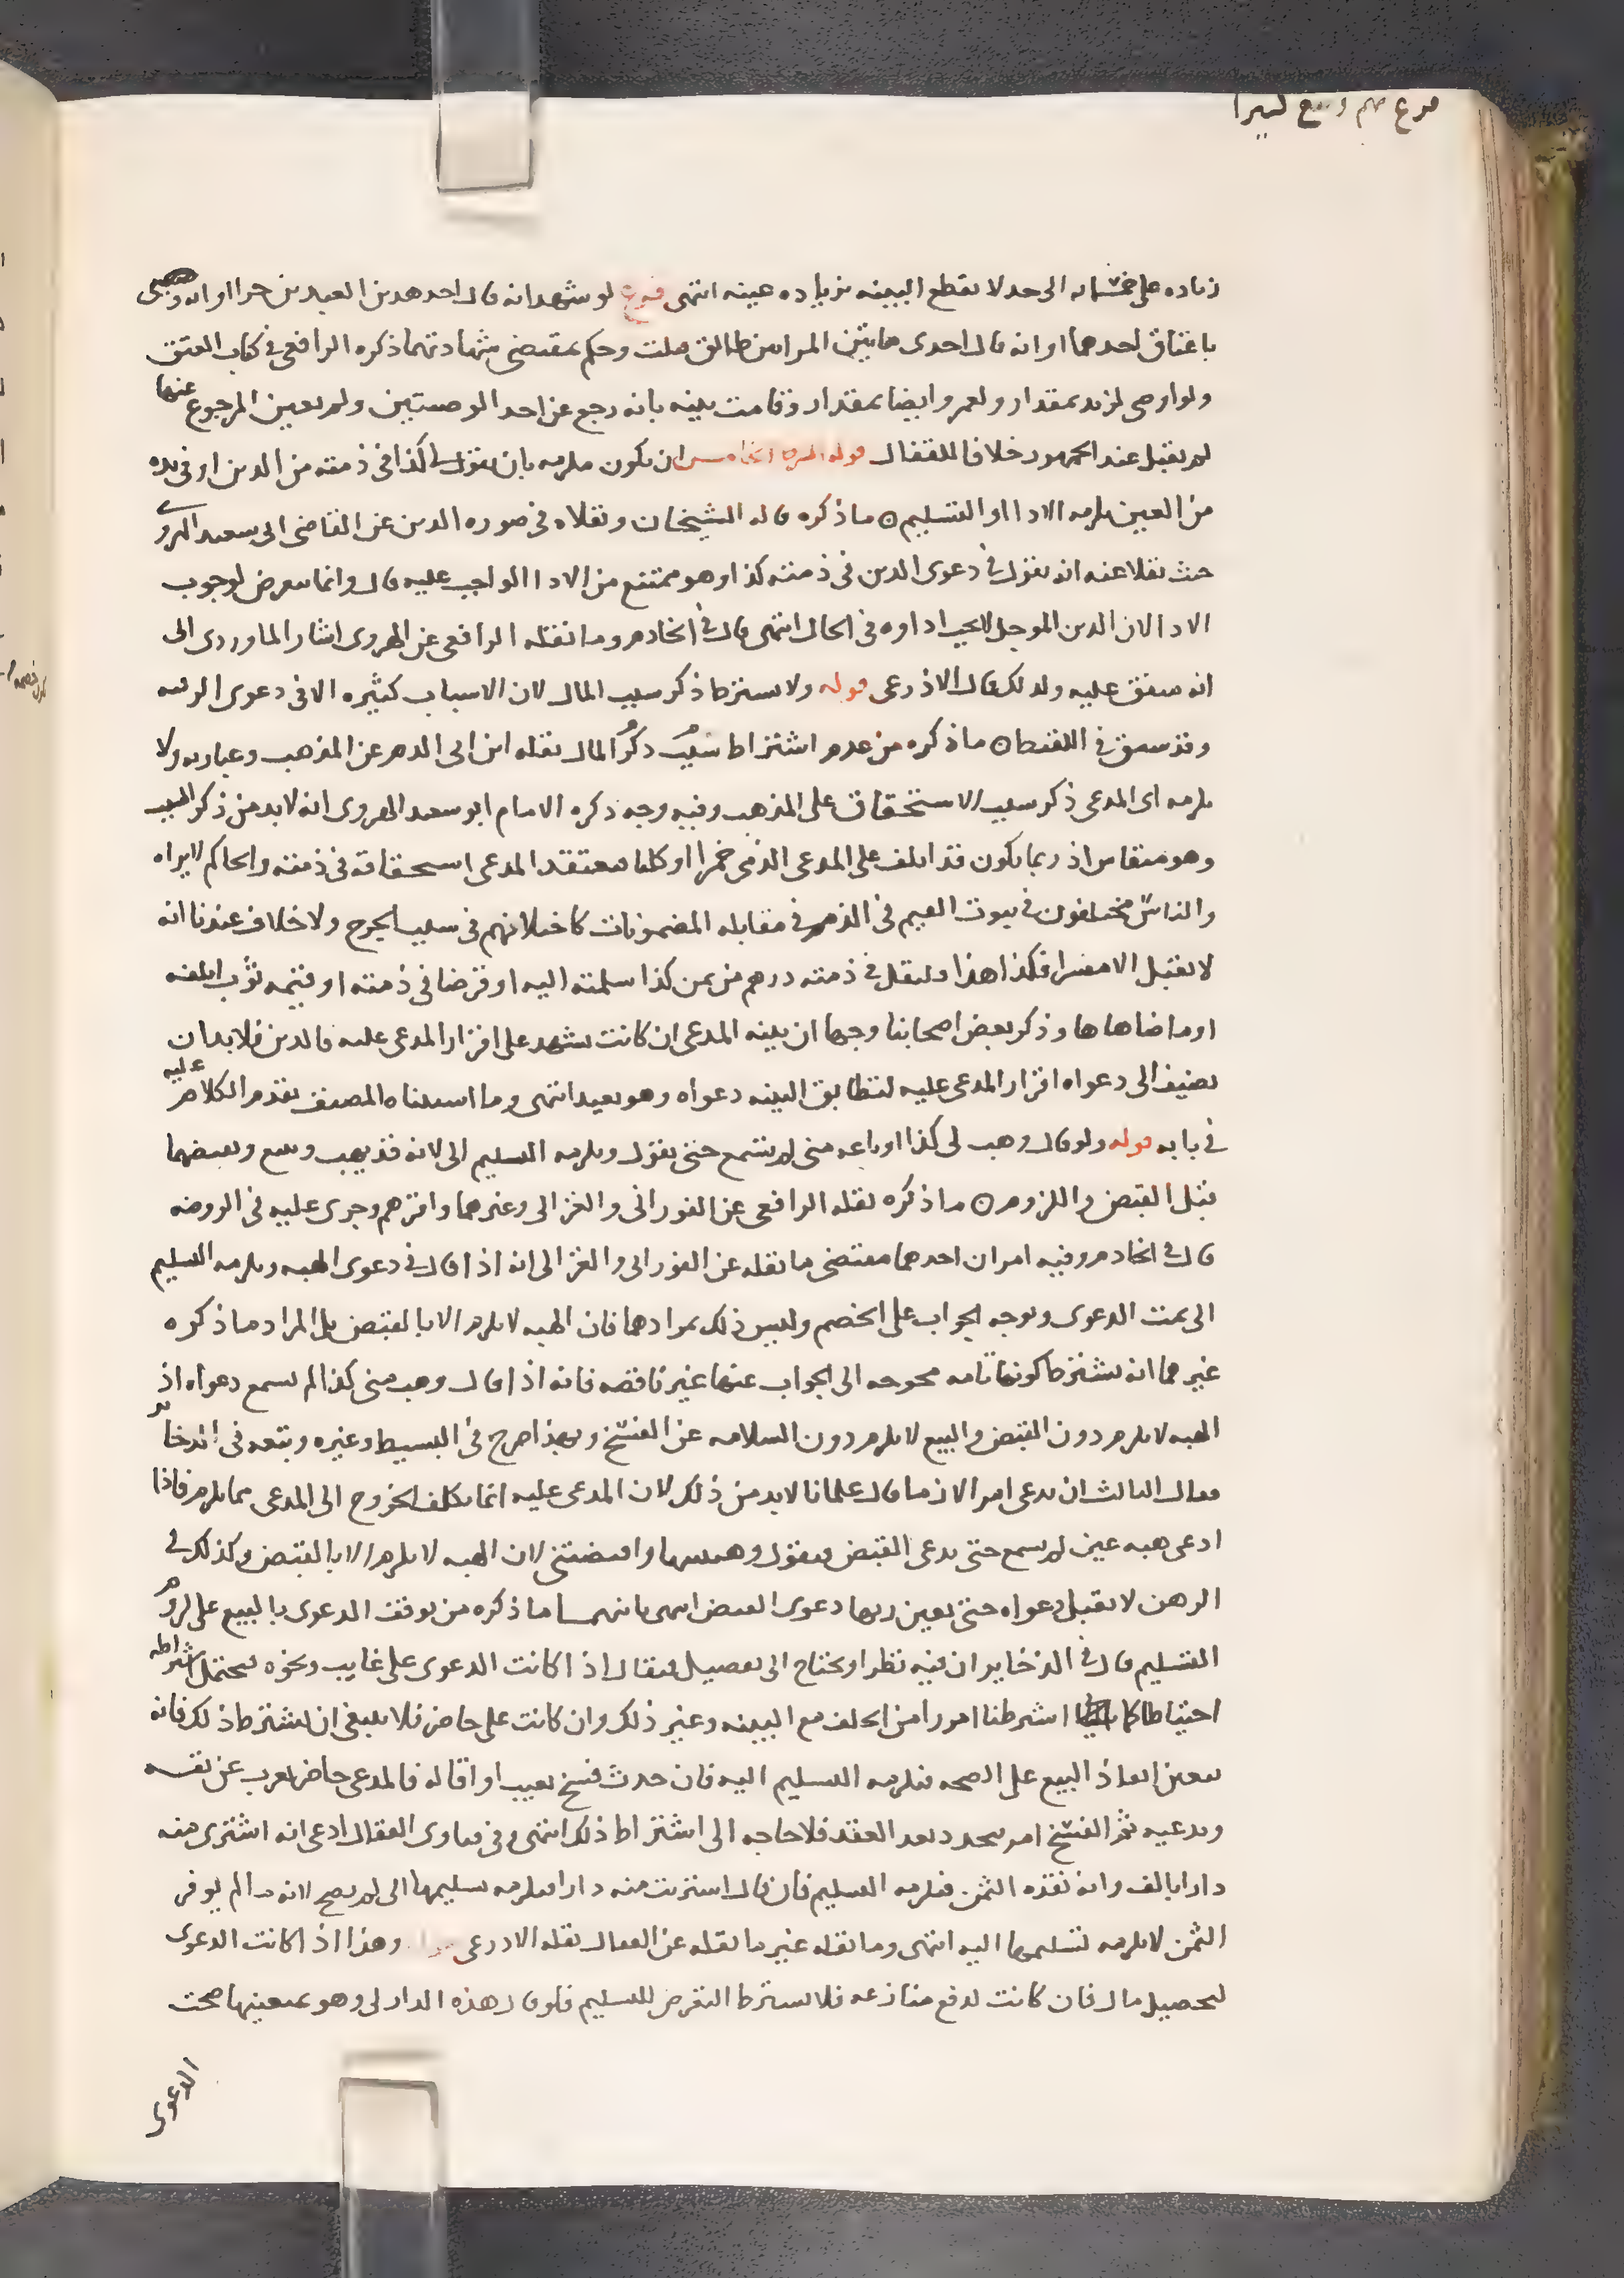 فرع مهم ويقع كثيرا
زياده على خمسمايه الى حد لا يقطع البينه بزياده عينه انتهى فرع لو شهد انه قال احد هدين العبدين حرا او انه وصى
باعتاق احدهما او انه قال احدى هاتين المراتين طالق قبلت وحكم بمقتضى شهادتهما ذكره الرافعى في كتاب العتق
ولو اوصى لزيد بمقدار ولعمرو ايضا بمقدار وقامت بينه بانه رجع عن احد الوصيتين ولم يعين المرجوع عنها
لم يقبل عند الجمهور خلافا للقفال قوله الشرط الخامس ان يكون ملزمه بان يقول لي كذا في ذمته من الدين او في يده
من العين يلزمه الادا او التسليم ۞ ما ذكره قاله الشيخان ونقلاه في صوره الدين عن القاضى ابى سعيد الهروى
حيث نقلا عنه انه يقول في دعوى الدين في ذمته كذا وهو ممتنع من الادا الواجب عليه قال وانما يعرض لوجوب
الادا لان الدين الموجل لا يجب اداوه في الحال انتهى قال في الخادم وما نقله الرافعى عن الهروى اشار الماوردى الى
انه متفق عليه ولذلك قال الاذرعى قوله ولا يشترط ذكر سبب المال لان الاسباب كثيره الا في دعوى الوديعه
وقد سبق في اللقطه ۞ ما ذكره من عدم اشتراط سبب ذكر المال نقله ابن ابى الدم عن المذهب وعبارته ولا
يلزمه اى المدعى ذكر سبب الاستحقاق على المذهب وفيه وجه ذكره الامام ابو سعد الهروى انه لا بد من ذكر السبب
وهو منقاس اذ ربما يكون قد اتلف على المدعى الذمى خمرا او كلبا يعتقد المدعى استحقاقه في ذمته والحاكم لا يراه
والناس مختلفون في ثبوت القيم في الذمم في مقابله المضمونات كاختلافهم في سبب الجرح ولا خلاف عندنا انه
لا يقبل الا مفسرا فكذا هذا وليقل في ذمته درهم من ثمن كذا سلمته اليه او قرضا في ذمته او قيمه ثوب اتلفه
او ما ضاهاها وذكر بعض اصحابنا وجها ان بينه المدعى ان كانت تشهد على اقرار المدعى عليه بالدين فلا بد ان
يضيف الى دعواه اقرار المدعى عليه لتطابق البينه دعواه وهو بعيد انتهى وما استثناه المصنف تقدم الكلام عليه
في بابه قوله ولو قال وهب لى كذا او باعه منى لم تسمع حتى يقول ويلزمه التسليم الى لانه قد يهب ويبيع وينقضهما
قبل القبض واللزوم ۞ ما ذكره نقله الرافعى عن الفورانى والغزالى وغيرهما واقرهم وجرى عليه في الروضه
قال في الخادم وفيه امران احدهما مقتضى ما نقله عن الفورانى والغزالى انه اذا قال في دعوى الهبه ويلزمه التسليم
الى تمت الدعوى وتوجه الجواب على الخصم وليس ذلك بمرادهما فان الهبه لا تلزم الا بالقبض بل المراد ما ذكره
غيرهما انه يشترط كونها تامه محوجه الى الجواب عنها غير ناقصه فانه اذا قال وهب منى كذا لم تسمع دعواه اذ
الهبه لا تلزم دون القبض والبيع لا يلزم دون السلامه عن الفسخ وبهذا صرح في البسيط وغيره وتبعه في الذخاير
فقال الثالث ان يدعى امرا لازما قال علمانا لا بد من ذلك لان المدعى عليه انما يكلف الخروج الى المدعى مما يلزم فاذا
ادعى هبه عين لم تسمع حتى يدعى القبض فيقول وهبنيها واقبضنى لان الهبه لا تلزم الا بالقبض وكذلك في
الرهن لا تقبل دعواه حتى يعين دعوى القبض انتهى ثانيهما ما ذكره من توقف الدعوى بالبيع على لزوم
التسليم قال في الذخاير ان فيه نظرا ويحتاج الى تفصيل فيقال اذا كانت الدعوى على غايب ونحوه يحتمل اشتراطه
احتياطا كما اشترطنا امورا من الحلف مع البينه وغير ذلك وان كانت على حاضر فلا ينبغى ان يشترط ذلك فانه
يتعين انفاذ البيع على الصحه فيلزمه التسليم اليه فان حدث فسخ بعيب او اقاله فالمدعى حاضر يعرب عن نفسه
ويدعيه ثم الفسخ امر يتجدد بعد العقد فلا حاجه الى اشتراط ذلك انتهى وفي فتاوى القفال ادعى انه اشترى منه
دارا بالف وانه نقده الثمن فيلزمه التسليم فان قال اشتريت منه دارا فيلزمه تسليمها الى لم يصح لانه ما لم يوفر
الثمن لا يلزمه تسليمها اليه انتهى وما نقله غير ما نقله عن القفال نقله الاذرعى قوله وهذا اذا كانت الدعوى
لتحصيل مال فان كانت لدفع منازعه فلا يشترط التعرض للتسليم فلو قال هذه الدار لى وهو يمنعنيها صحت
الدعوى